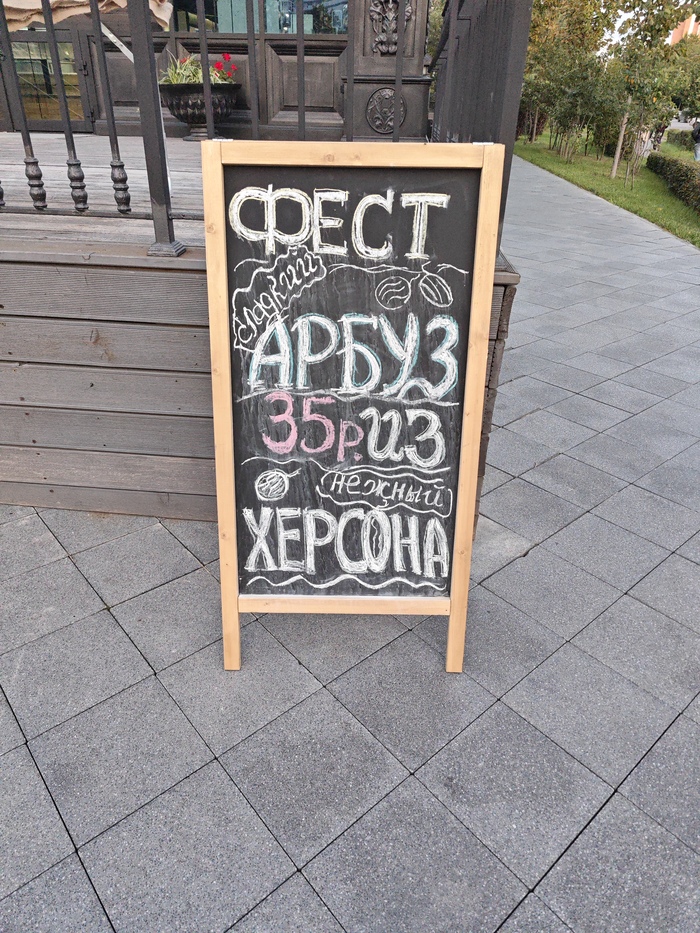 ФЕСТ
сладкий
АРБУЗ
35р. ИЗ
нежный
ХЕРСОНА